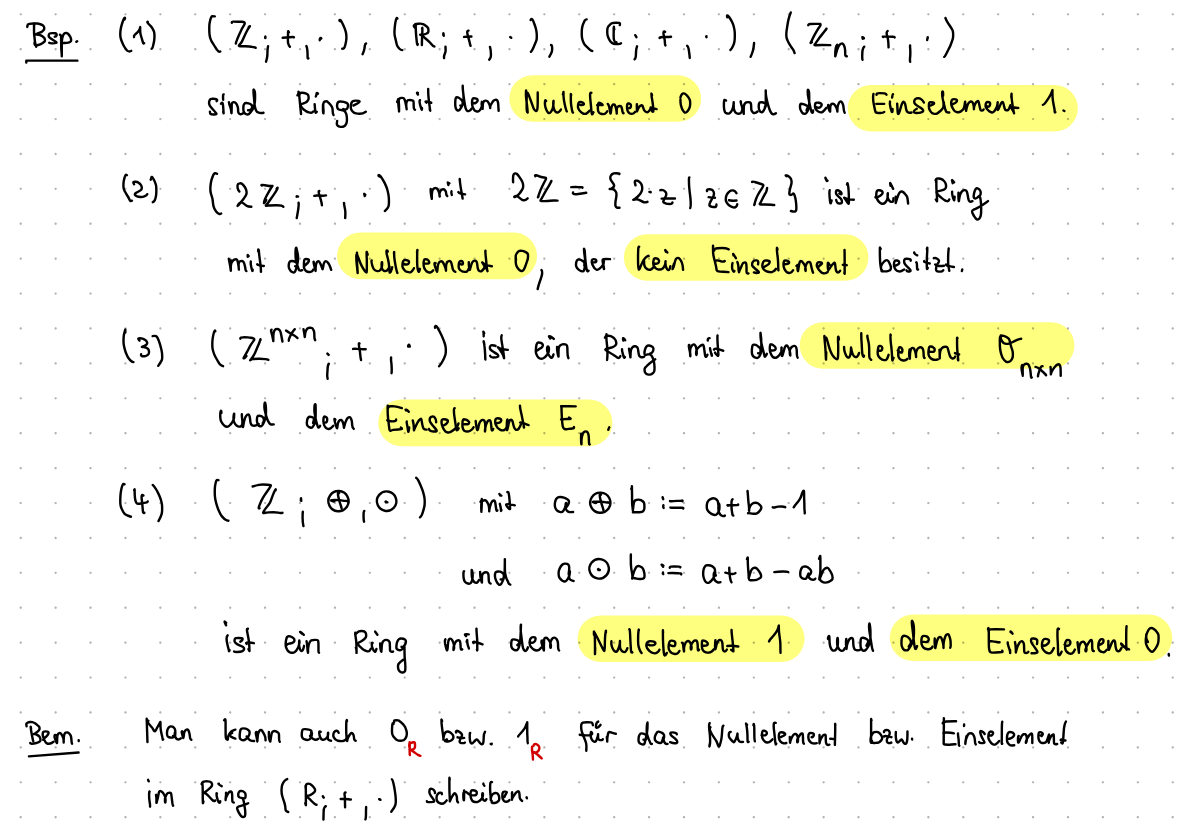 Bsp. (1) (ℤ; +, ·), (ℝ; +, ·), (ℂ; +, ·), (ℤₙ; +, ·)
sind Ringe mit dem Nullelement 0 und dem Einselement 1.
(2) (2ℤ; +, ·) mit 2ℤ = {2·z | z ∈ ℤ} ist ein Ring
mit dem Nullelement 0, der kein Einselement besitzt.
(3) (ℤⁿˣⁿ; +, ·) ist ein Ring mit dem Nullelement 𝒪ₙₓₙ
und dem Einselement Eₙ.
(4) (ℤ; ⊕, ⊙) mit a ⊕ b := a+b−1
und a ⊙ b := a+b−ab
ist ein Ring mit dem Nullelement 1 und dem Einselement 0.
Bem. Man kann auch 0_R bzw. 1_R für das Nullelement bzw. Einselement
im Ring (R; +, ·) schreiben.